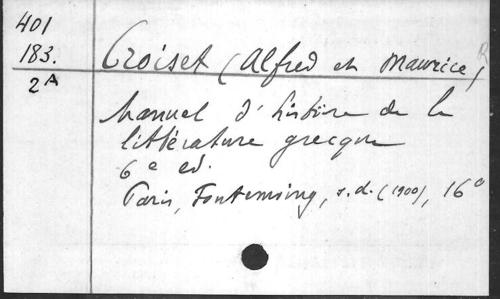 401
183.
2A
Croiset (Alfred et Maurice) R
Manuel d'histoire de la
littérature grecque
6e ed.
Paris, Fontemoing, s.d. (1900), 16°